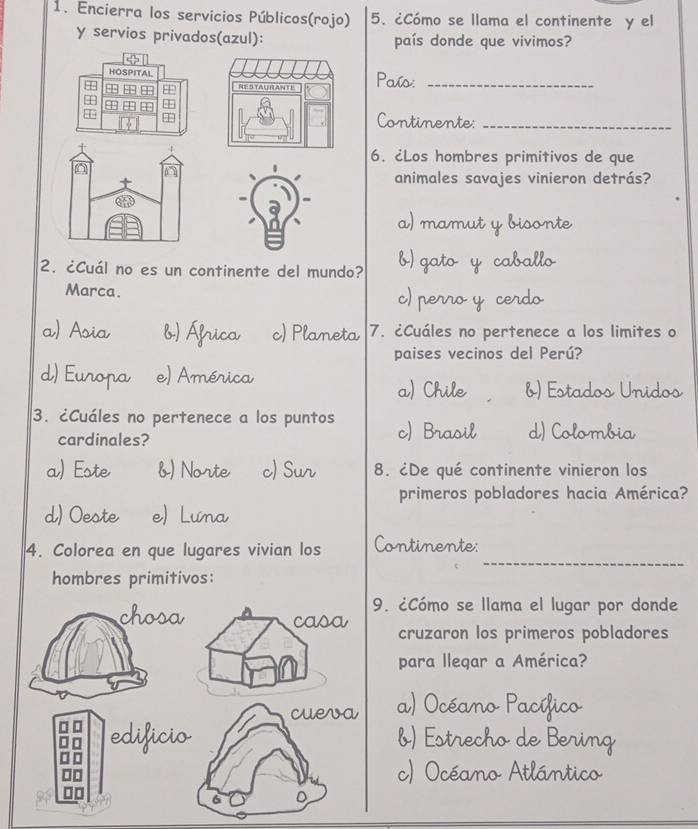 1. Encierra los servicios Públicos(rojo)
y servios privados(azul):
HOSPITAL
RESTAURANTE
2. ¿Cuál no es un continente del mundo?
Marca.
a) Asia b) África c) Planeta
d) Europa e) América
3. ¿Cuáles no pertenece a los puntos
cardinales?
a) Este b) Norte c) Sur
d) Oeste e) Luna
4. Colorea en que lugares vivian los
hombres primitivos:
chosa casa
edificio cueva
5. ¿Cómo se llama el continente y el
país donde que vivimos?
País:
Continente:
6. ¿Los hombres primitivos de que
animales savajes vinieron detrás?
a) mamut y bisonte
b) gato y caballo
c) perro y cerdo
7. ¿Cuáles no pertenece a los limites o
paises vecinos del Perú?
a) Chile b) Estados Unidos
c) Brasil d) Colombia
8. ¿De qué continente vinieron los
primeros pobladores hacia América?
Continente:
9. ¿Cómo se llama el lugar por donde
cruzaron los primeros pobladores
para llegar a América?
a) Océano Pacífico
b) Estrecho de Bering
c) Océano Atlántico